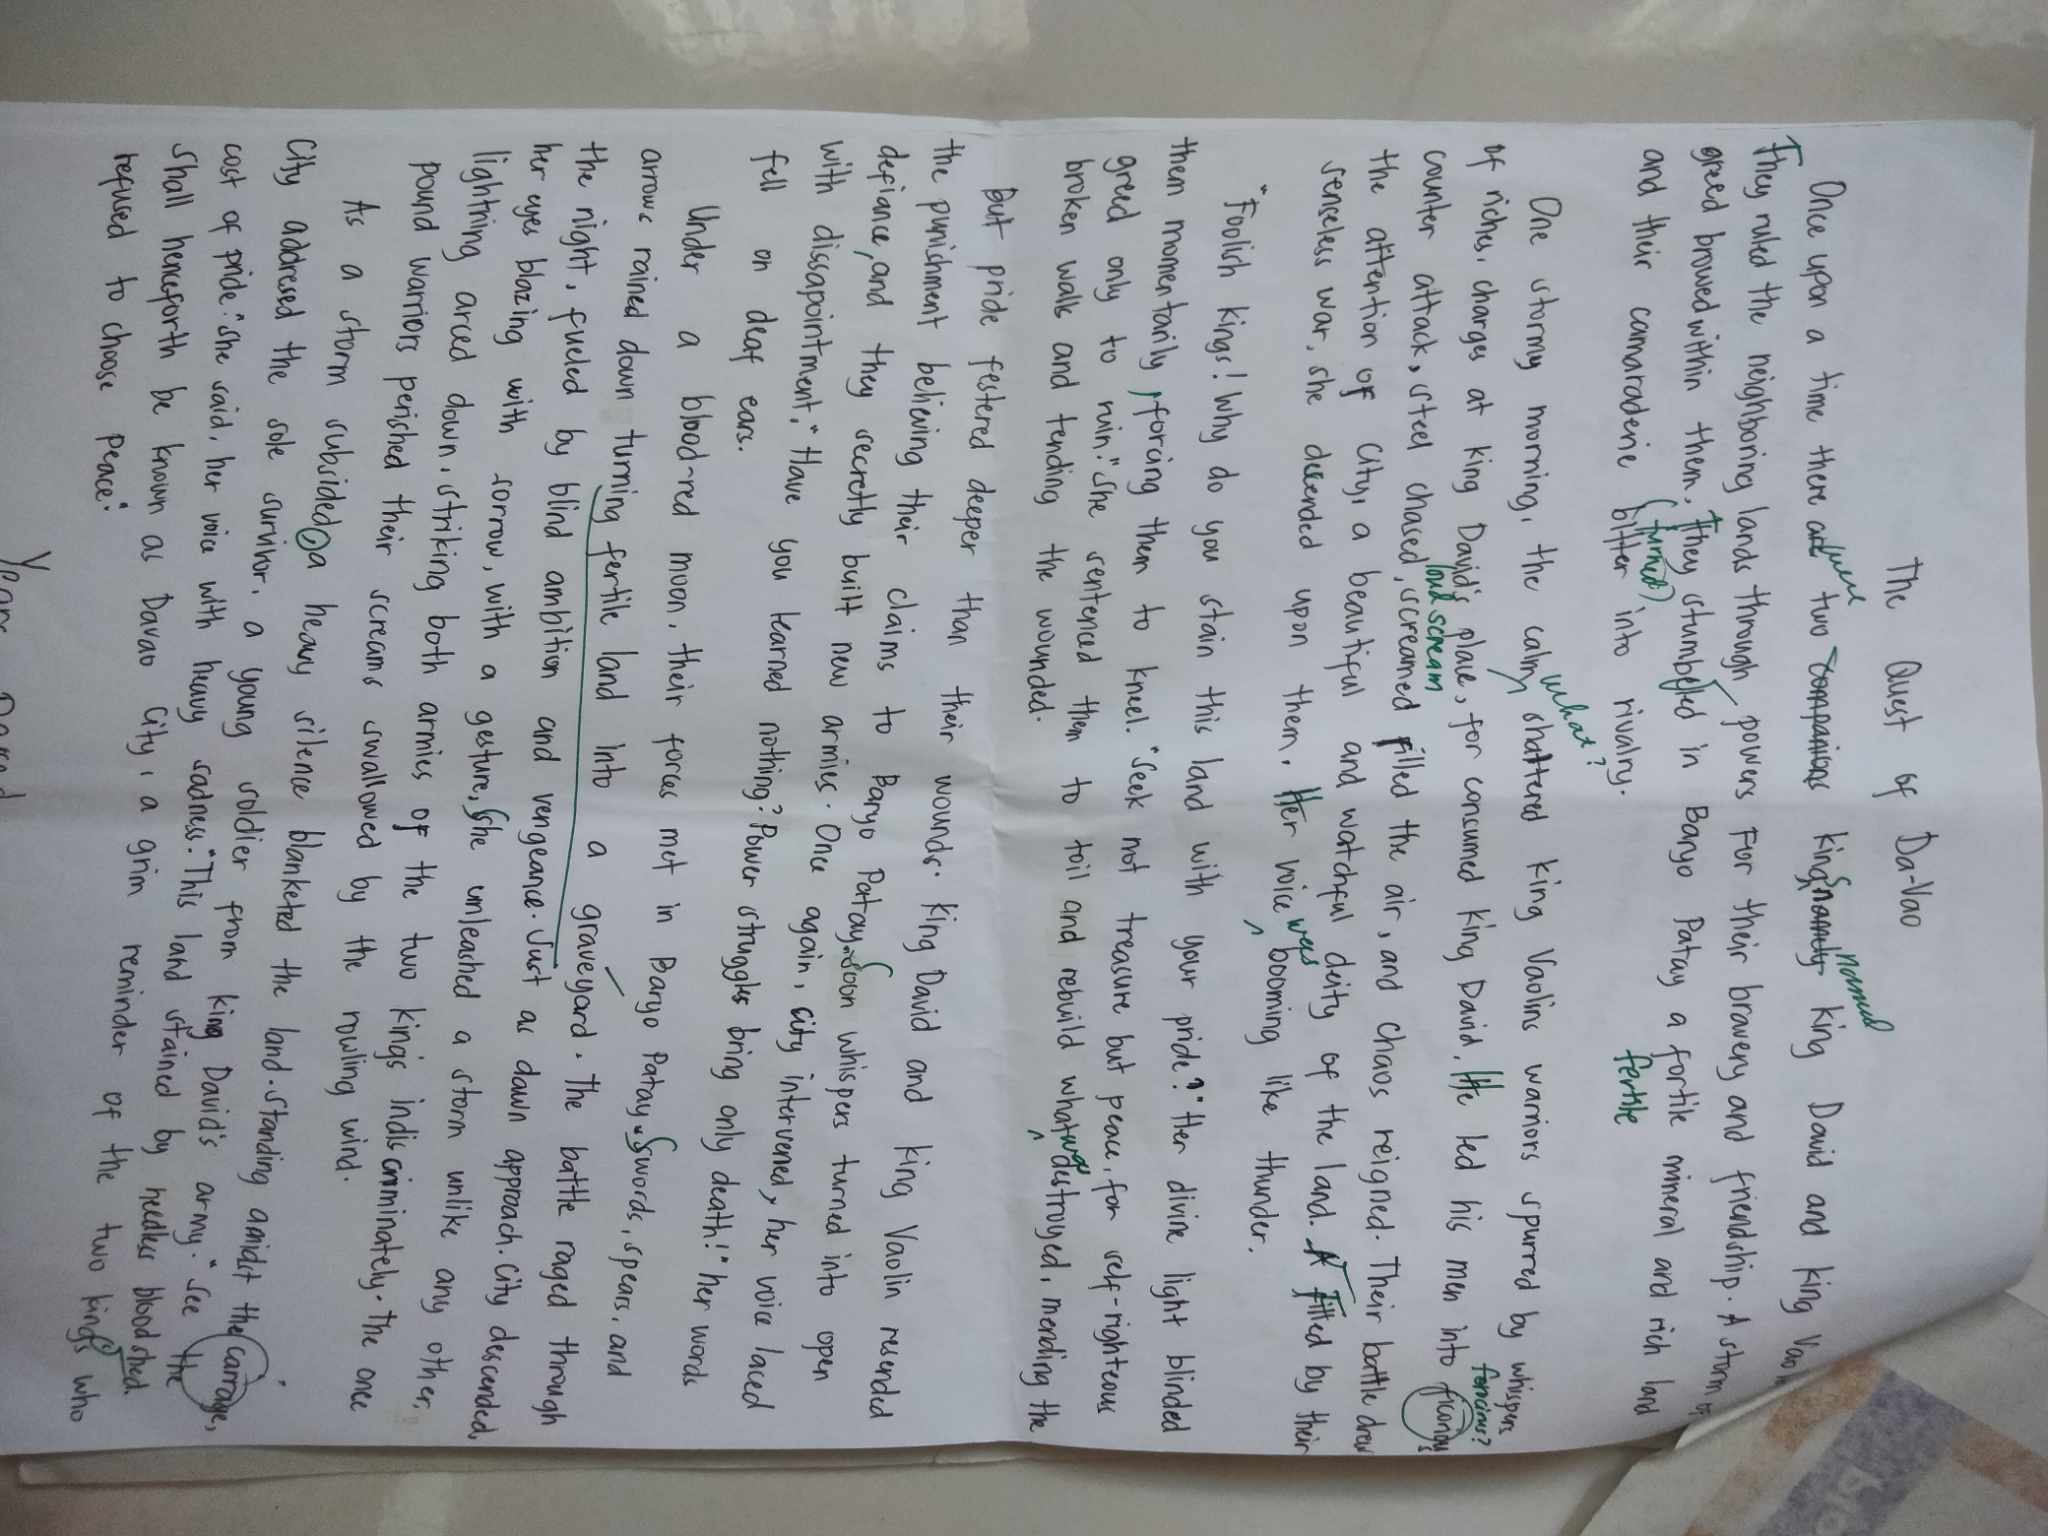 The Quest of Da-Vao
Once upon a time there are were two companions kings namely named King David and King Vaolin
They ruled the neighboring lands through powers For their bravery and friendship. A storm of
greed browed within them. They stumbelled in Baryo Patay a fortile mineral and rich land
fertile
and their camaraderie (turned) bitter into rivalry.
what?
One stormy morning, the calm shattered King Vaolins warriors spurred by whispers
of riches, charges at King David's place, for consumed King David. He led his men into
ferocious?
counter attack, steel chased, screamed filled the air, and chaos reigned. Their battle drew
loud scream
the attention of City, a beautiful and watchful deity of the land. Filled by their
senseless war, she decended upon them. Her voice was booming like thunder.
"Foolish kings! Why do you stain this land with your pride?" Her divine light blinded
them momentarily, forcing them to kneel. "Seek not treasure but peace, for self-righteous
greed only to ruin." She sentenced them to toil and rebuild what was destroyed, mending the
broken walls and tending the wounded.
But pride festered deeper than their wounds. King David and King Vaolin resended
the punishment believing their claims to Baryo Patay. Soon whispers turned into open
defiance, and they secretly built new armies. Once again, City intervened, her voice laced
with dissapointment, "Have you learned nothing? Power struggles bring only death!" her words
fell on deaf ears.
Under a blood-red moon, their forces met in Baryo Patay. Swords, spears, and
arrows rained down turning fertile land into a graveyard. The battle raged through
the night, fueled by blind ambition and vengeance. Just as dawn approach. City descended,
her eyes blazing with sorrow, with a gesture, She unleashed a storm unlike any other,
lightning arced down, striking both armies of the two kings indiscriminately. The one
pound warriors perished their screams swallowed by the rowling wind.
As a storm subsided, a heavy silence blanketed the land. Standing amidst the carrage,
City addresed the sole survivor, a young soldier from king David's army. "See the
cost of pride." She said, her voice with heavy sadness. "This land stained by needless bloodshed
shall henceforth be known as Davao City, a grim reminder of the two kings who
refused to choose peace".